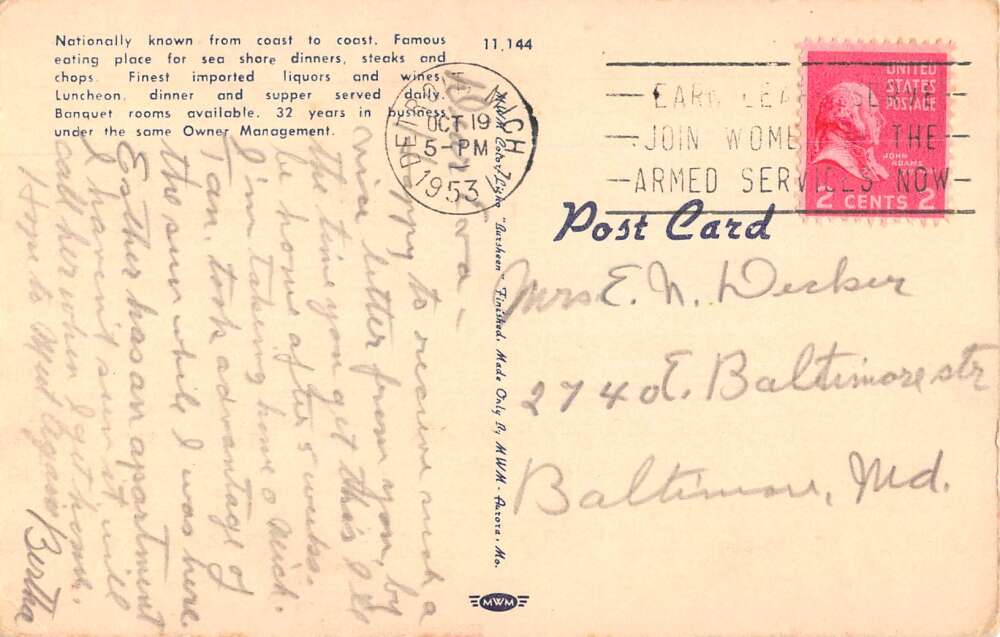 Nationally known from coast to coast. Famous
eating place for sea shore dinners, steaks and
chops. Finest imported liquors and wines.
Luncheon, dinner and supper served daily.
Banquet rooms available. 32 years in business
under the same Owner Management.
11,144
DETROIT MICH
OCT 19
5-PM
1953
EARN LEARN SERVE
JOIN WOMEN IN THE
ARMED SERVICES NOW
UNITED
STATES
POSTAGE
JOHN
ADAMS
2 CENTS 2
Post Card
Mrs E. N. Decker
2740 E. Baltimore str
Baltimore, Md.
MWM Color-Litho "Bursheen" Finished. Made Only By MWM - Aurora, Mo.
MWM
Happy to receive such a
nice letter from you, by
the time you get this I'll
be home after 5 weeks.
I'm taking home a Mich.
Tan. took advantage of
the sun while I was here.
Esther has an apartment
I haven't seen it, will
call her when I get home.
Hope to meet again/Bertha